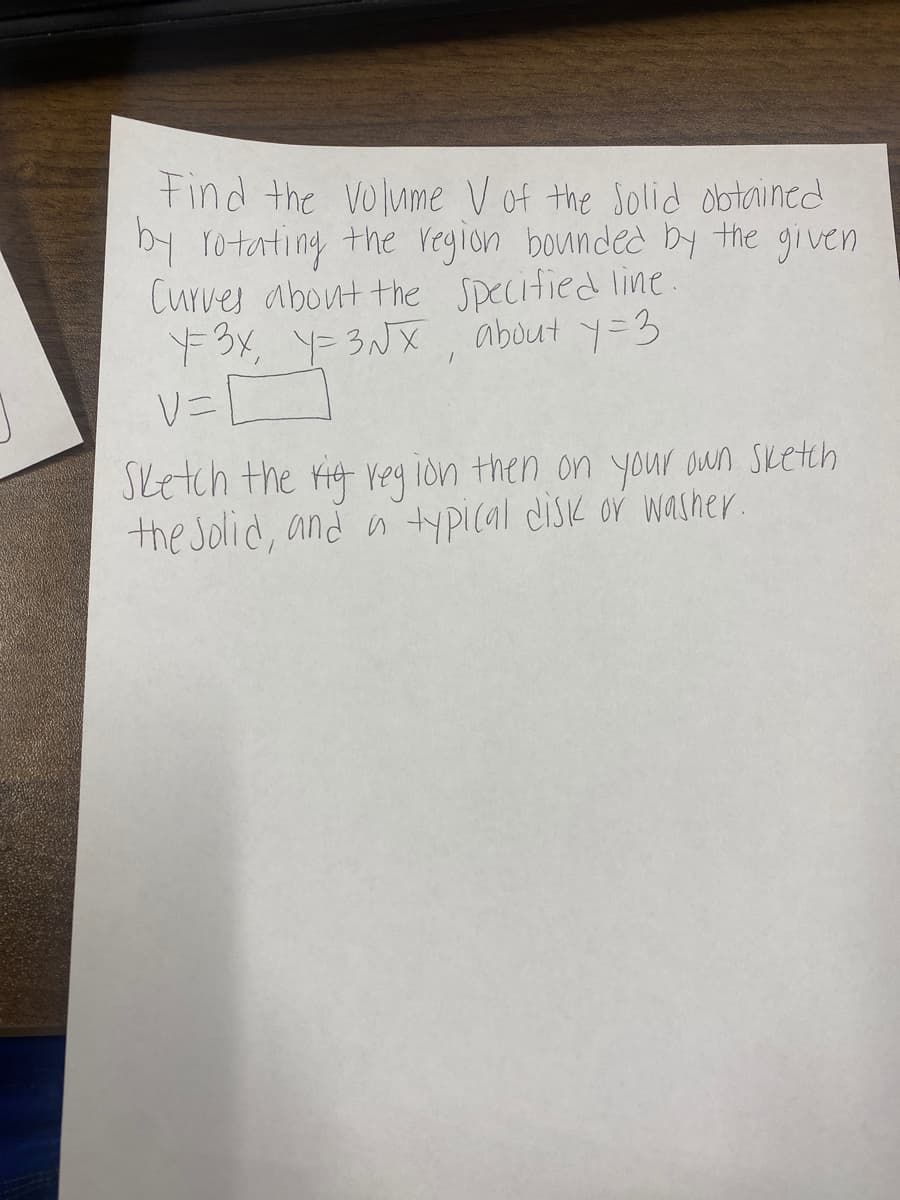 Find the Volume V of the Solid obtained
by rotating the region bounded by the given
Curves about the specified line.
y=3x, y=3√x , about y=3
V=
Sketch the rig region then on your own sketch
the solid, and a typical disk or washer.